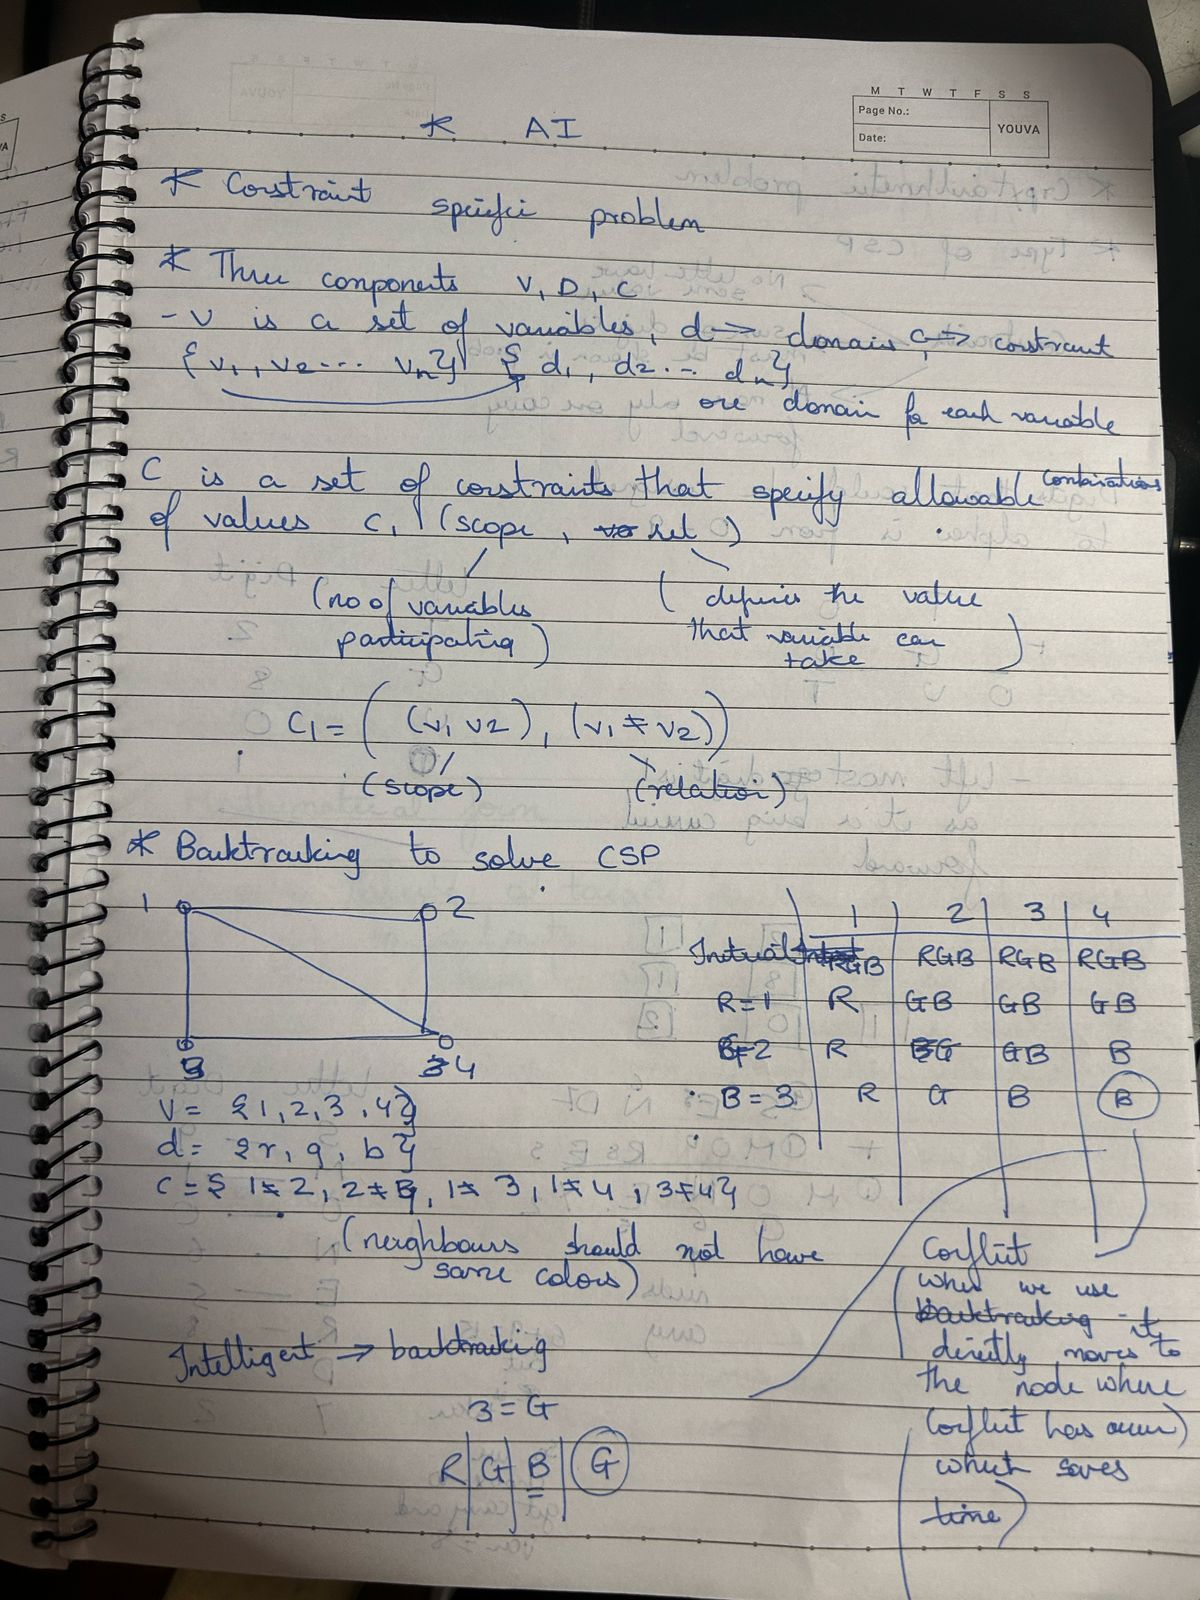 M T W T F S S
Page No.:
Date:
YOUVA
* AI
* Constraint specific problem
* Three components V, D, C
- V is a set of variables, d → domain C → constraint
{v1, v2 ... vn} {d1, d2 ... dn}
one domain for each variable
C is a set of constraints that specify allowable combinations
of values C1 (scope, rel)
(no of variables participating)
(defines the value that variable can take)
C1 = ((v1 v2), (v1 ≠ v2))
(scope) (relation)
* Backtracking to solve CSP
1 2
3 4
1 2 3 4
Initial RGB RGB RGB RGB
R=1 R GB GB GB
G=2 R G GB B
B=3 R G B B
V = {1, 2, 3, 4}
d = {r, g, b}
C = {1≠2, 2≠4, 1≠3, 1≠4, 3≠4}
(neighbours should not have
same colors)
Conflict
when we use
backtracking it
directly moves to
the node where
conflict has occur)
which saves
time)
Intelligent → backtracking
3 = G
R G B G